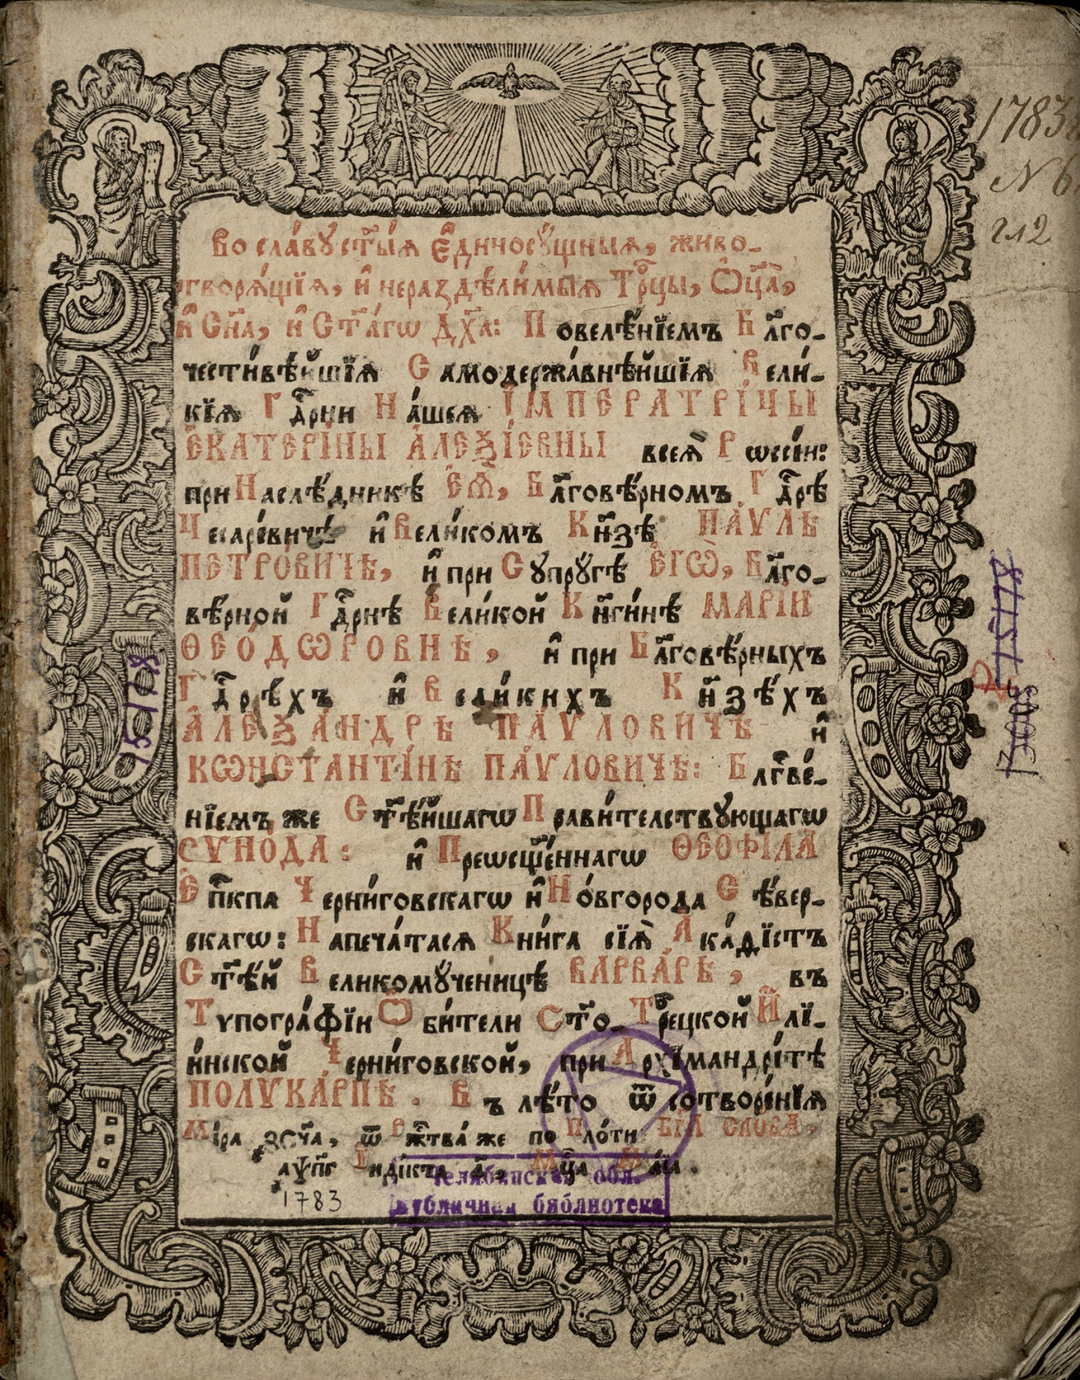 Во сла́ву ст҃ы́ѧ Є҆диносꙋ́щныѧ, живо-
творѧ́щїѧ, и҆ нераздѣли́мыѧ Трⷪ҇цы, Ѻ҆ц҃а̀,
и҆ Сн҃а, и҆ Ст҃а́гѡ Дх҃а: Повелѣ́нїемъ Бл҃го-
чести́вѣйшїѧ Самодержа́внѣйшїѧ Вели́-
кїѧ Гдⷭ҇рни На́шеѧ І҆МПЕРАТРІ́ЦЫ
Є҆КАТЕРІ́НЫ А҆ЛЕѮІ́ЕВНЫ всеѧ̀ Рѡссі́и:
при Наслѣ́дникѣ Є҆Ѧ̀, Бл҃говѣ́рномъ Гдⷭ҇рѣ
Цесаре́вичѣ и҆ Вели́комъ Кн҃зѣ ПА́ѴЛѢ
ПЕТРО́ВИЧѢ, и҆ при Сꙋпрꙋ́гѣ Є҆ГѠ̀, Бл҃го-
вѣ́рной Гдⷭ҇рнѣ Вели́кой Кн҃ги́нѣ МАРІ́И
ѲЕО́ДѠРОВНѢ, и҆ при Бл҃говѣ́рныхъ
Гдⷭ҇рѣхъ и҆ Вели́кихъ Кн҃зѣ́хъ
А҆ЛЕѮА́НДРѢ ПА́ѴЛОВИЧѢ и҆
КѠНСТАНТІ́НѢ ПА́ѴЛОВИЧѢ: Блгⷭ҇ве́-
нїемъ же Ст҃ѣ́йшагѡ Прави́телствꙋющагѡ
СѴНО́ДА: и҆ Преѡсщ҃е́ннагѡ ѲЕОФІ́ЛА
Є҆пⷭ҇кпа Черни́говскагѡ и҆ Но́вгорода Сѣ́вер-
скагѡ: Напеча́тасѧ Кни́га сїѧ̀ А҆ка́ѳїстъ
Ст҃ѣ́й Великомꙋ́ченицѣ ВАРВА́РѢ, въ
Тѷпогра́фїи Ѻ҆би́тели Ст҃о-Трⷪ҇ецкой И҆лї-
и́нской Черни́говской, при А҆рхїмандрі́тѣ
ПОЛѴКА́РПѢ. Въ лѣ́то ѿ сотворе́нїѧ
Мі́ра ҂зсч҃а, ѿ Ржⷭ҇тва́ же по пло́ти БГ҃А СЛО́ВА,
҂аѱп҃г І҆ндїкта а҃, Мцⷭ҇а Ма́їа.
1783
1783
N 6
гл2
95178
Р 95178
Челябинская обл.
публичная библиотека